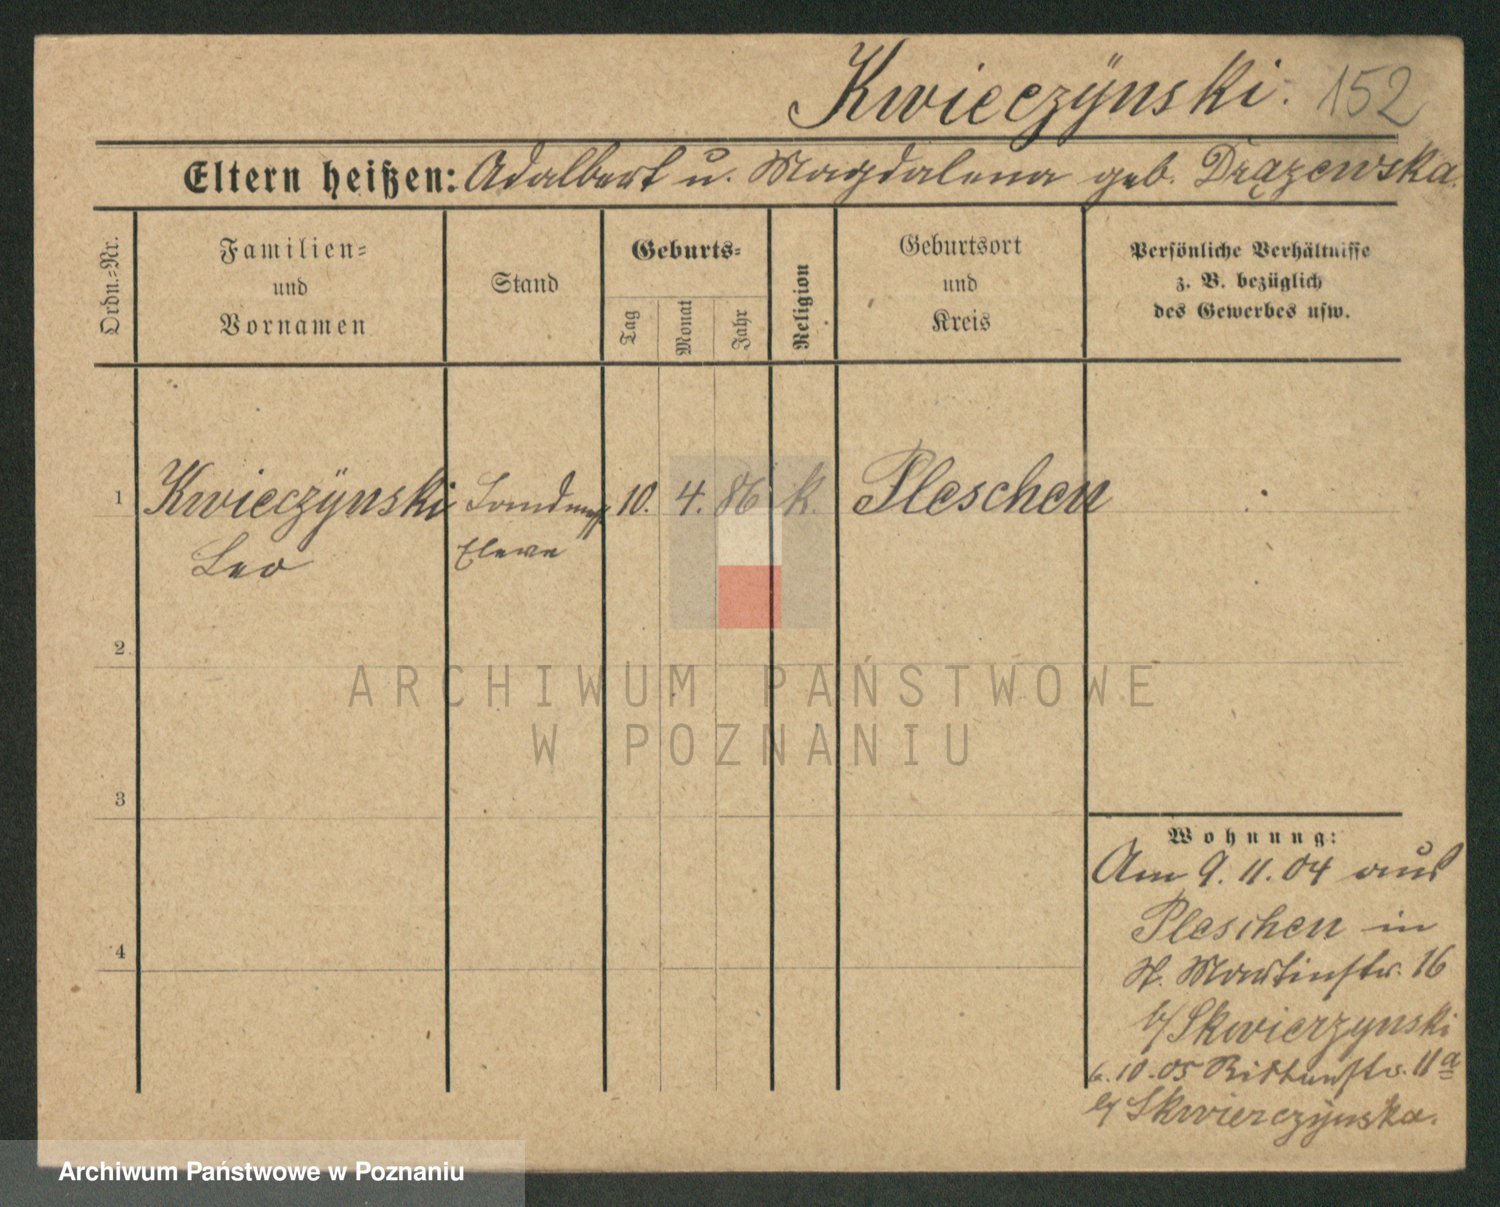 Kwieczÿnski. 152
Eltern heißen: Adalbert u. Magdalena geb. Drązewska.
Ordn.=Nr.
Familien=
und
Vornamen
Stand
Geburts=
Tag
Monat
Jahr
Religion
Geburtsort
und
Kreis
Persönliche Verhältnisse
z. B. bezüglich
des Gewerbes usw.
1 Kwieczÿnski Landmess 10. 4. 86 k. Pleschen
Leo Eleve
2
3
4
Wohnung:
Am 9. 11. 04 aus
Pleschen in
St. Martinstr. 16
b/ Skwierzynski
6. 10. 05 Ritterstr. 11a
b/ Skwierczÿnska.
ARCHIWUM PAŃSTWOWE
W POZNANIU
Archiwum Państwowe w Poznaniu